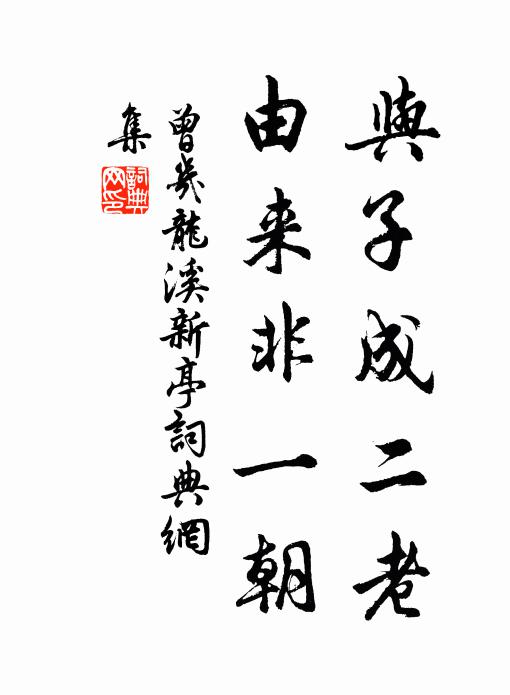 與子成二老
由来非一朝
曾幾龍溪新亭詞典網
集
詞典網印